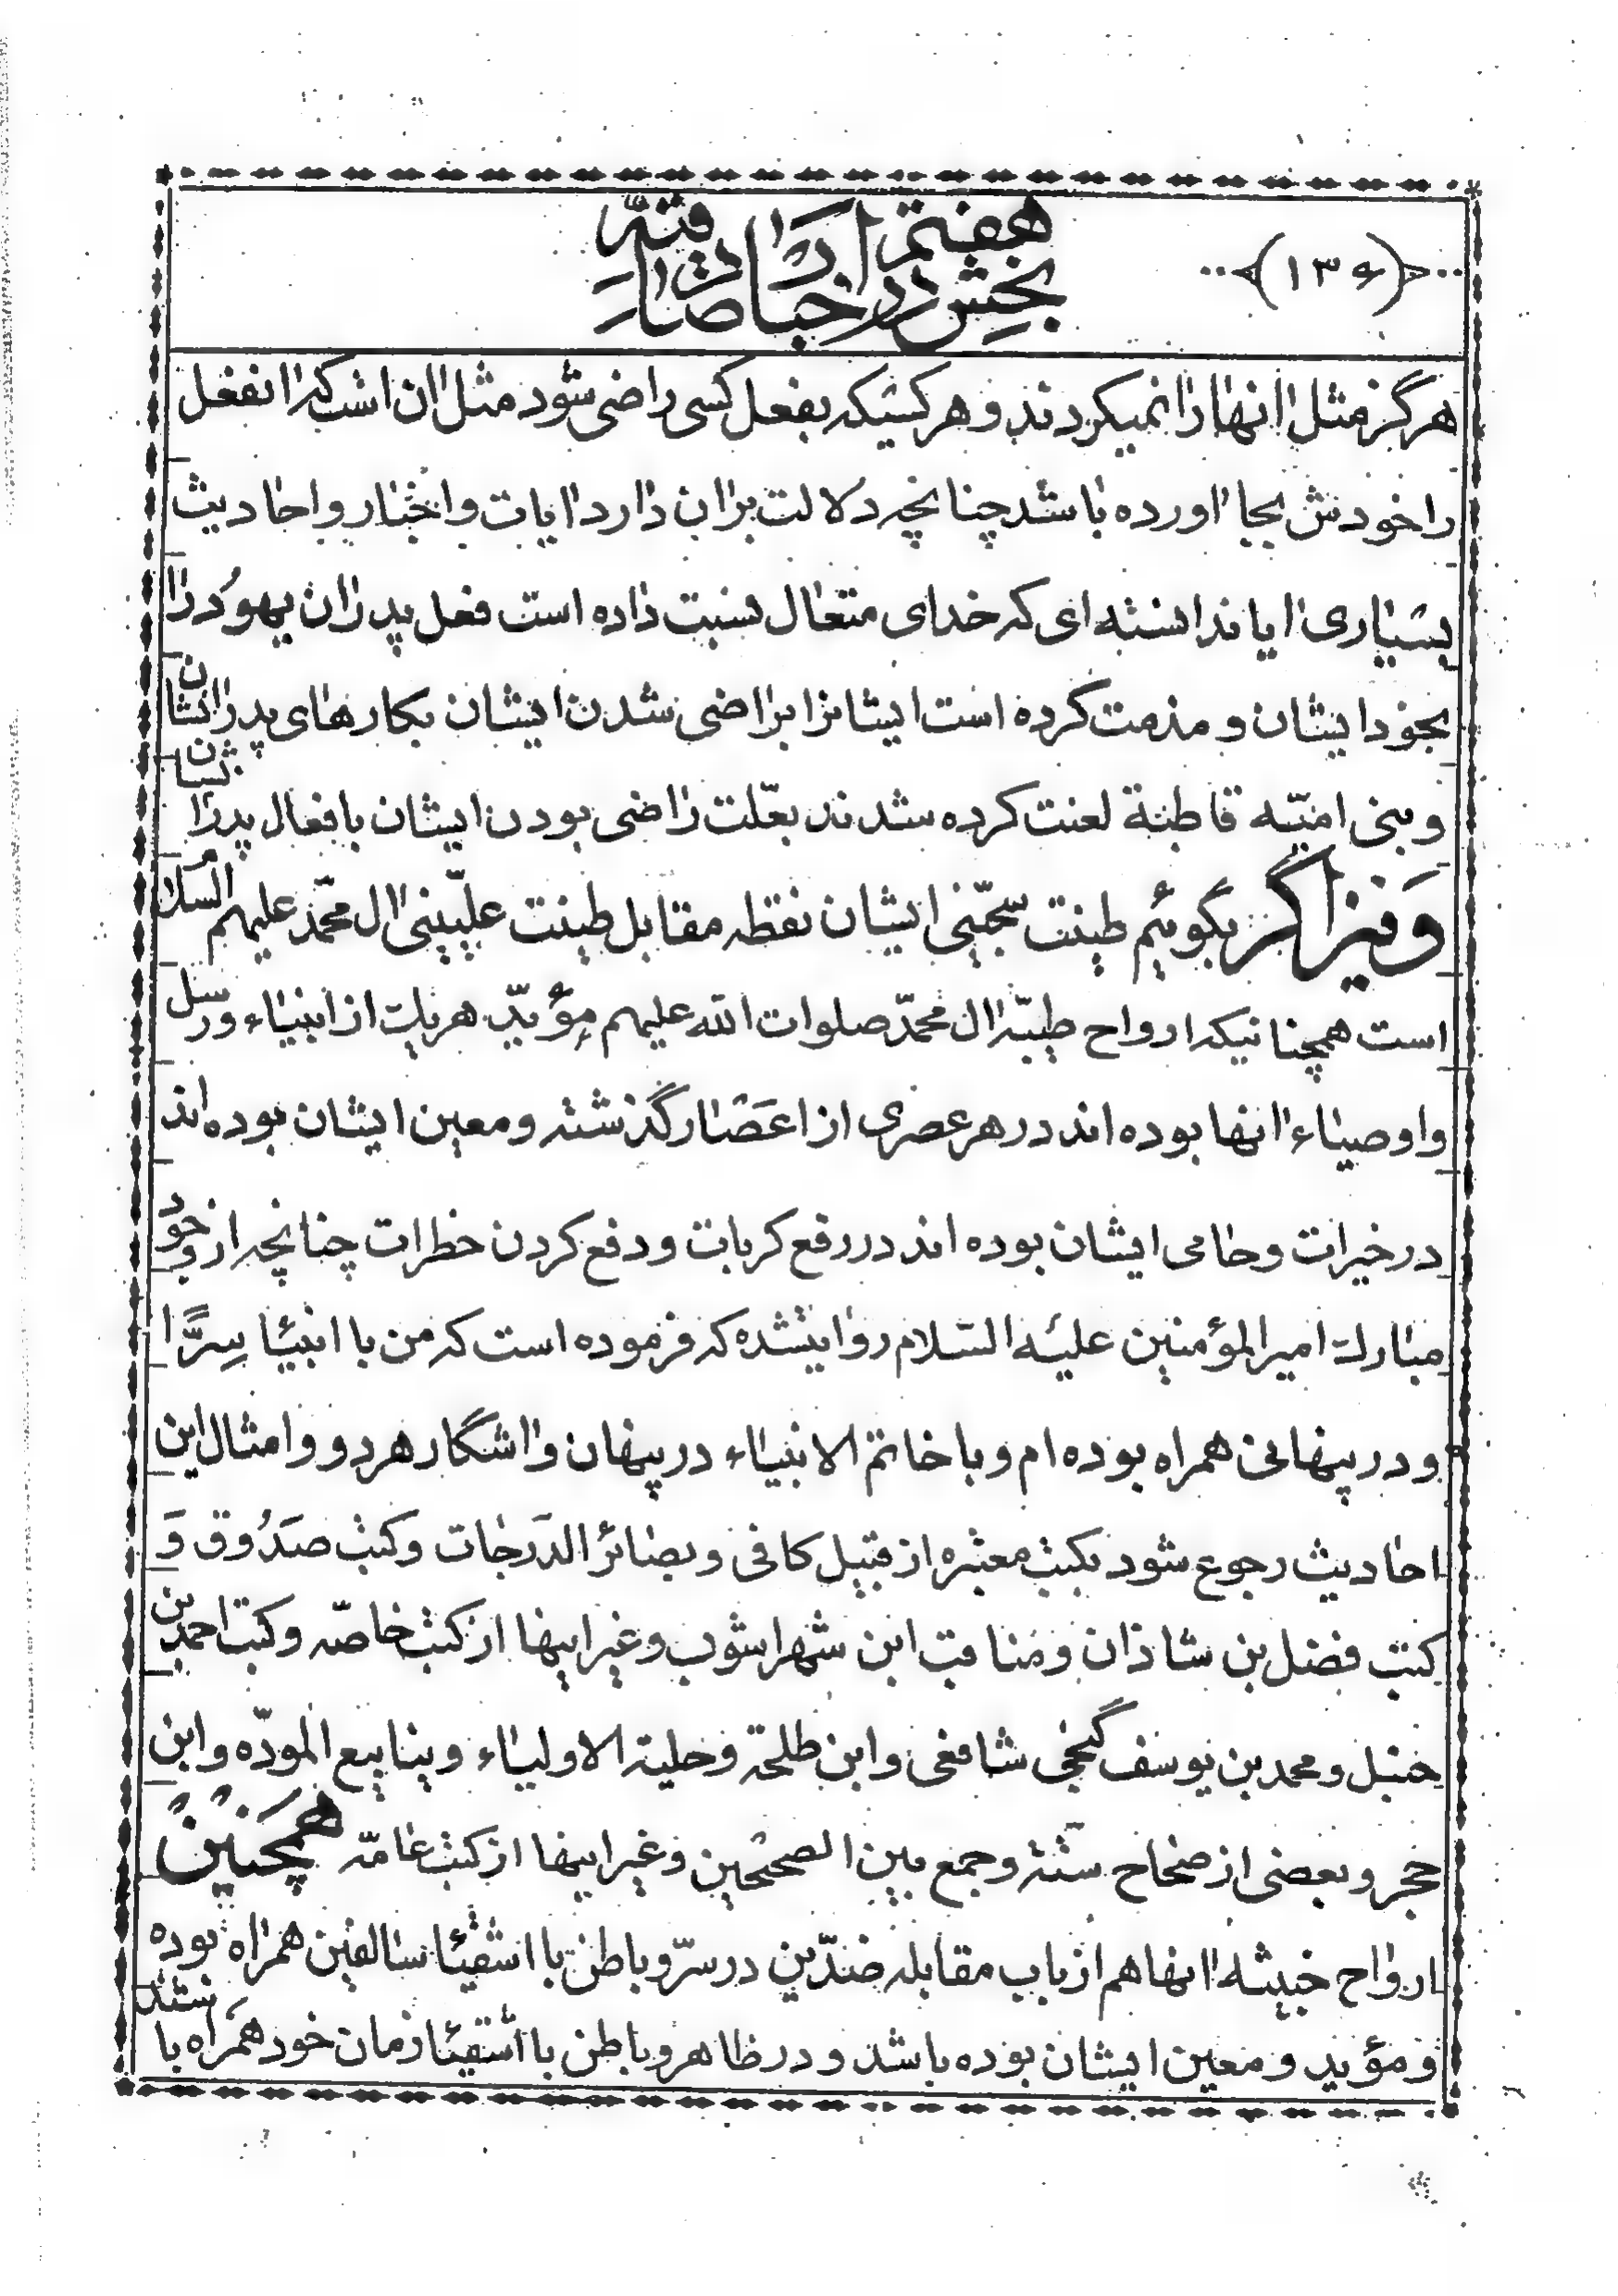 ﴿۱۳۶﴾
بخش هفتم در اخبار
هرگز مثل انها را نمیکردند و هر کسیکه بفعل کسی راضی شود مثل ان است که انفعل
را خودش بجا اورده باشد چنانچه دلالت بران دارد ایات و اخبار و احادیث
بسیاری ایا ندانسته ای که خدای متعال نسبت داده است فعل پدران یهود را
بخود ایشان و مذمت کرده است ایشانرا براضی شدن ایشان بکارهای پدرانشان
و بنی امیّه قاطبة لعنت کرده شدند بعلّت راضی بودن ایشان بافعال پدرانشان
و نیز اگر بگوئیم طینت سجّینی ایشان نقطه مقابل طینت علّیینی ال محمّد علیهم السلام
است همچنانیکه ارواح طیبّه ال محمّد صلوات الله علیهم مؤیّد هریک از انبیاء و رسل
و اوصیاء انها بوده اند در هر عصری از اعصار گذشته و معین ایشان بوده اند
در خیرات و حامی ایشان بوده اند در رفع کربات و دفع کردن خطرات چنانچه از وجود
مبارک امیر المؤمنین علیه السّلام روایتشده که فرموده است که من با انبیا سِرًّا
و در پنهانی همراه بوده ام و با خاتم الانبیاء در پنهان و اشگار هر دو و امثال این
احادیث رجوع شود بکتب معتبره از قبیل کافی و بصائر الدّرجات و کتب صدوق و
کتب فضل بن شاذان و مناقب ابن شهراشوب و غیر اینها از کتب خاصّه و کتب احمد بن
حنبل و محمد بن یوسف گنجی شافعی و ابن طلحة و حلیة الاولیاء و ینابیع المودّه و ابن
حجر و بعضی از صحاح ستّة و جمع بین الصحیحین و غیر اینها از کتب عامّه همچنین
ارواح خبیثه انها هم از باب مقابله ضدّین در سرّ و باطن با اشقیا سالفین همراه بوده
و مؤید و معین ایشان بوده باشند و در ظاهر و باطن با اشقیا زمان خود همراه با